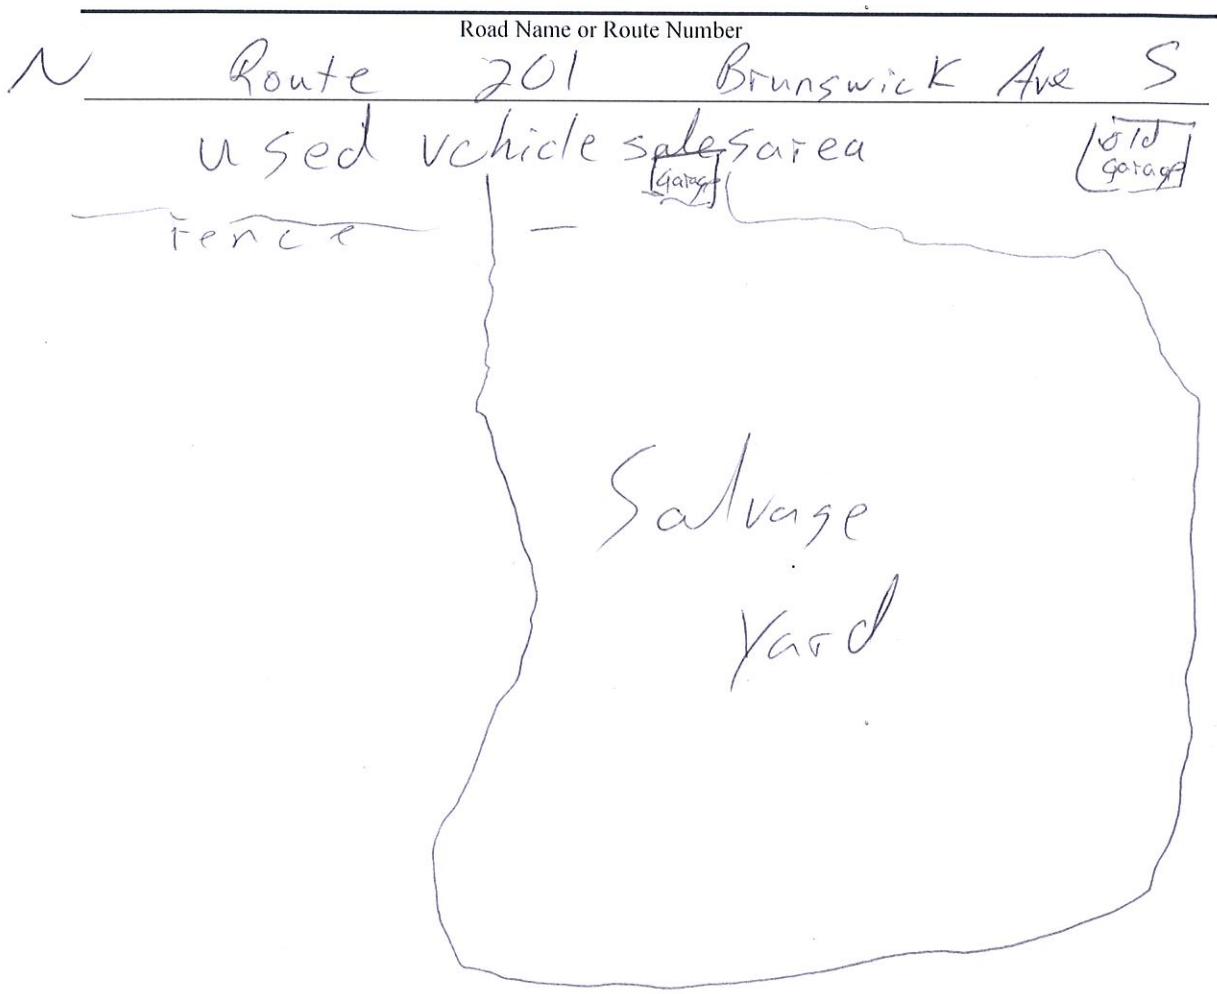 Road Name or Route Number
N Route 201 Brunswick Ave S
used vehicle sales area
garage
old
garage
fence
Salvage
Yard